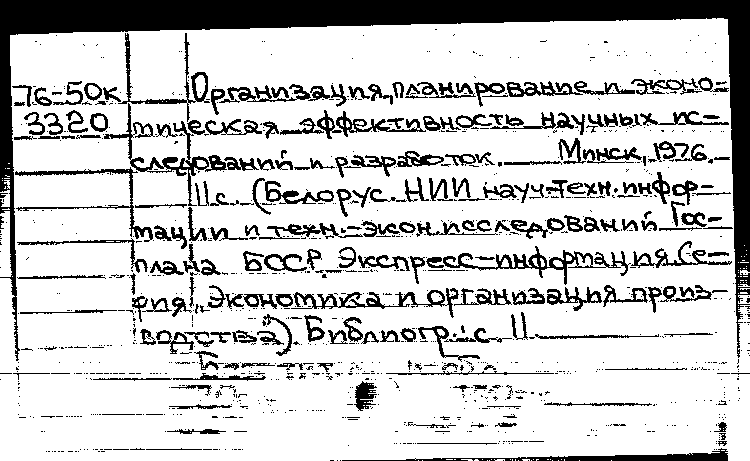 76-50к Организация, планирование и эконо-
3320 мическая эффективность научных ис-
следований и разработок. Минск, 1976.
11с. (Белорус. НИИ науч-техн. инфор-
мации и техн.-экон. исследований Гос-
плана БССР. Экспресс-информация. Се-
рия „Экономика и организация произ-
водства"). Библиогр.: с. 11.
Без тит. л.